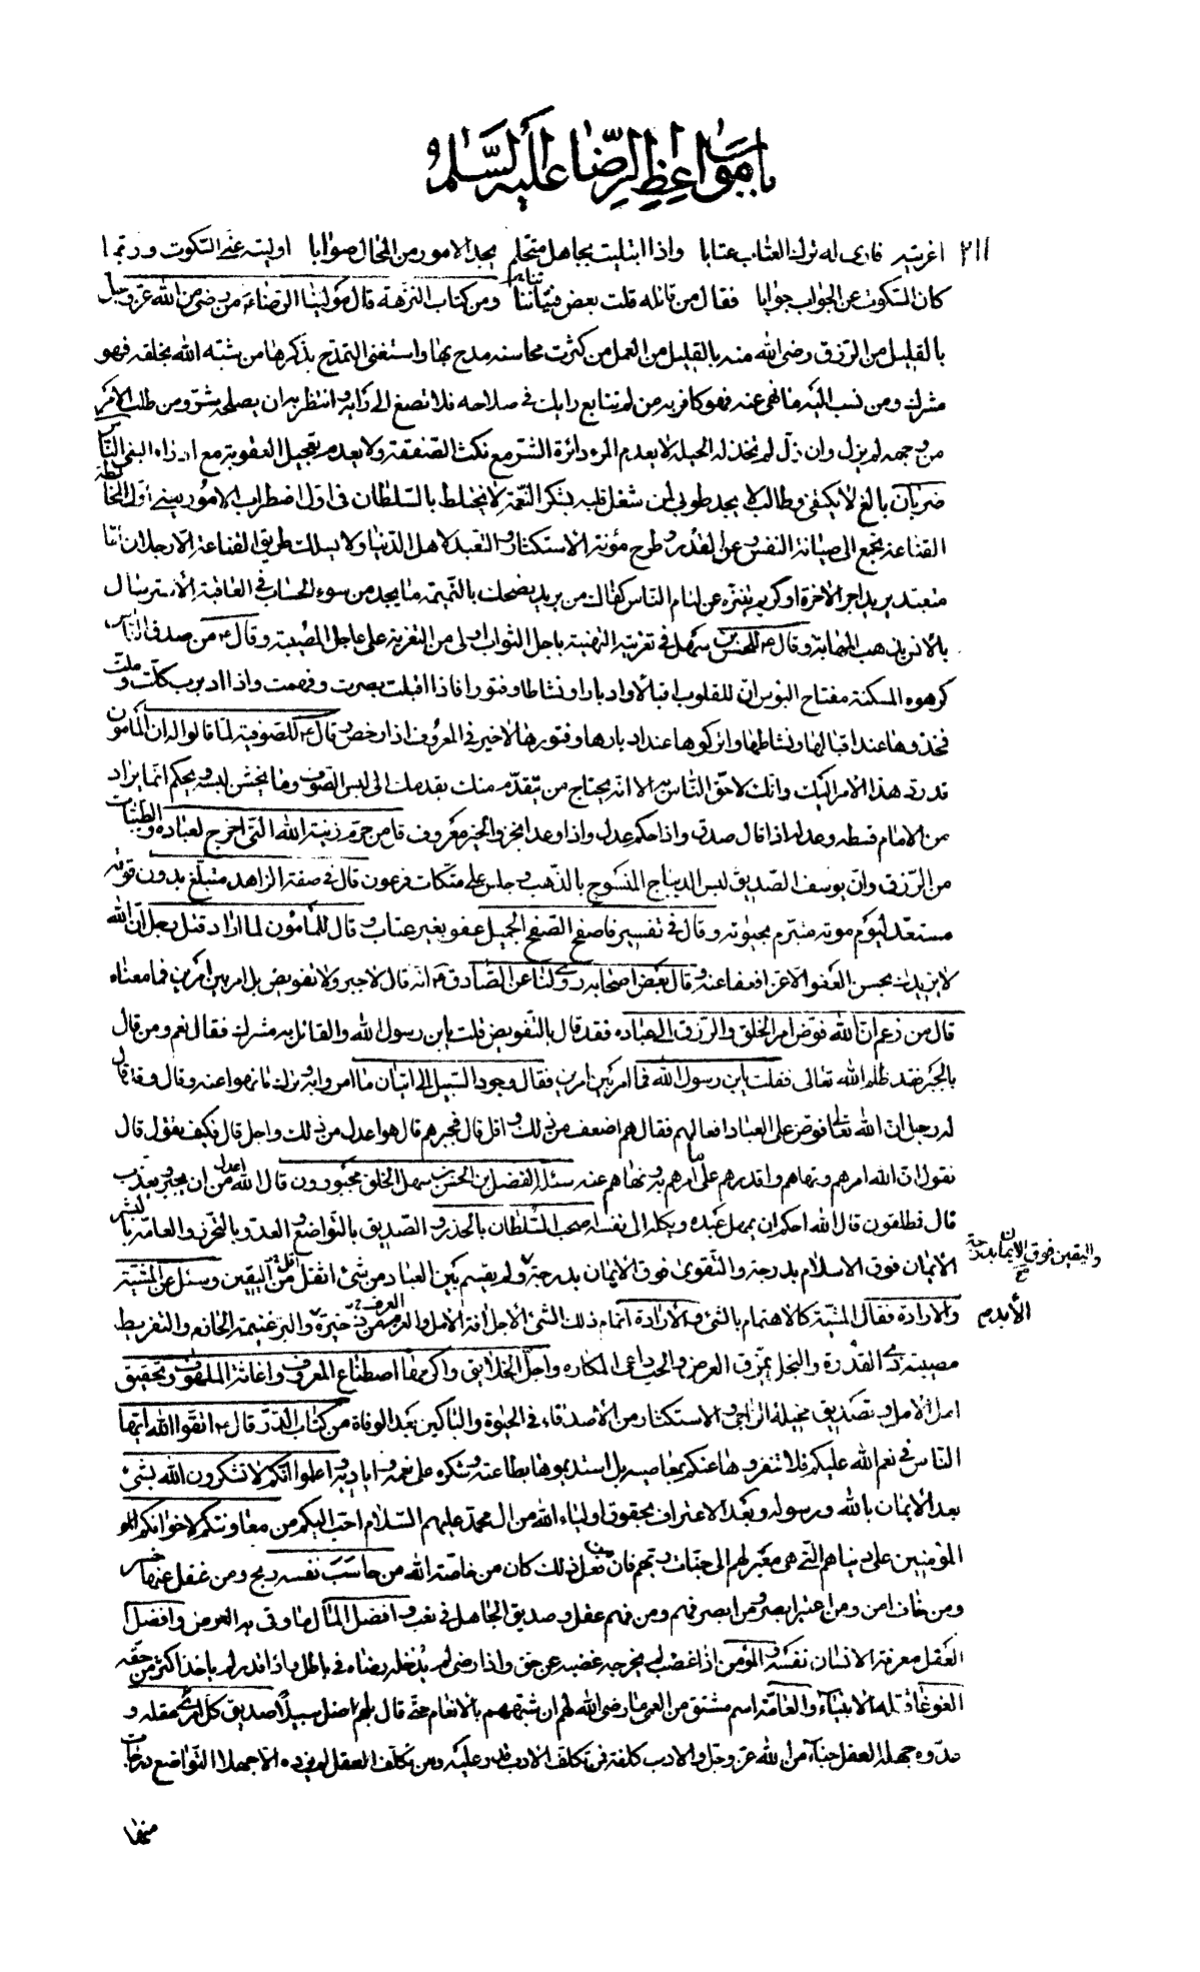 باب مواعظ الرضا عليه السلام
٢١١ اغريته فارى له ترك العتاب عتابا واذا ابتليت بجاهل متحلم يجد الامور من المحال صوابا اوليته عنى السكوت وربما
كان السكوت عن الجواب جوابا فقال من قائله قلت بعض فتياننا ومن كتاب النزهة قال مولينا الرضاء ع من رضى من الله عز وجل
بالقليل من الرزق رضى الله منه بالقليل من العمل من كثرت محاسنه مدح بها واستغنى التمدح بذكرها من شبه الله بخلقه فهو
مشرك ومن نسب اليه ما نهى عنه فهو كافر به من لم تتابع رايك فى صلاحه فلا تصغ الى رايه وانتظر به ان يصلحه شر ومن طلب الامر
من وجهه لم يزل وان زل لم تخذله الحيلة لا يعدم المرء دائرة الشر مع نكث الصفقة ولا يعدم تعجيل العقوبة مع ادراه البغى الناس
ضربان بالغ لا يكتفى وطالب لا يجد طوبى لمن شغل قلبه بشكر النعمة لا يختلط بالسلطان فى اول اضطراب الامور يعنى اول المخالطة
القناعة تجمع الى صيانة النفس وعز القدر وطرح مؤنة الاستكثار والتعبد لاهل الدنيا ولا يسلك طريق القناعة الا رجلان اما
متعبد يريد اجر الاخرة او كريم يتنزه عن لئام الناس كفاك من يريد نصحك بالنميمة ما يجد من سوء الحساب فى العاقبة الاسترسال
بالانس يذهب المهابة وقال ع للحسن بن سهل فى تعزيته التهنية باجل الثواب اولى من التعزية على عاجل المصيبة وقال ع من صدق الناس
كرهوه المسكنة مفتاح البؤس ان للقلوب اقبالا وادبارا ونشاطا وفتورا فاذا اقبلت بصرت وفهمت واذا ادبرت كلت وملت
فخذوها عند اقبالها ونشاطها واتركوها عند ادبارها وفتورها لا خير فى المعروف اذا رخص وقال ع للصوفية لما قالوا له ان المامون
قد رد هذا الامر اليك وانك لاحق الناس به الا انه يحتاج من يتقدم منك بقدمك الى لبس الصوف وما يخشن لبسه ويحكم انما يراد
من الامام قسطه وعدله اذا قال صدق واذا حكم عدل واذا وعد انجز والخير معروف قل من حرم زينة الله التى اخرج لعباده والطيبات
من الرزق وان يوسف الصديق لبس الديباج المنسوج بالذهب وجلس على متكات فرعون قال فى صفة الزاهد متبلغ بدون قوته
مستعد ليوم موته متبرم بحيوته وقال فى تفسير فاصفح الصفح الجميل عفو بغير عتاب وقال للمامون لما اراد قتل رجل ان الله
لا يزيدك بحسن العفو الا عزا فعفا عنه وقال بعض اصحابه روى لنا عن الصادق ع انه قال لا جبر ولا تفويض بل امر بين امرين فما معناه
قال من زعم ان الله فوض امر الخلق والرزق الى عباده فقد قال بالتفويض قلت يابن رسول الله والقائل به مشرك فقال نعم ومن قال
بالجبر فقد ظلم الله تعالى فقلت يابن رسول الله فما امر بين امرين فقال وجود السبيل الى اتيان ما امروا به وترك ما نهوا عنه وقال وقد قال
له رجل ان الله تعالى فوض على العباد افعالهم فقال هم اضعف من ذلك واقل قال فجبرهم قال هو اعدل من ذلك واجل قال فكيف تقول قال
نقول ان الله امرهم ونهاهم واقدرهم على ما امرهم به ونهاهم عنه سئله الفضل بن الحسن بن سهل الخلق مجبورون قال الله اعدل من ان يجبر ويعذب
قال فمطلقون قال الله احكم ان يمهل عبده ويكله الى نفسه اصحب السلطان بالحذر والصديق بالتواضع والعدو بالتحرز والعامة بالبشر
الايمان فوق الاسلام بدرجة والتقوى فوق الايمان بدرجة ولم يقسم بين العباد من شئ اقل من اليقين وسئل عن المشية
واليقين فوق الايمان بدرجة
والارادة فقال المشية كالاهتمام بالشئ والارادة اتمام ذلك الشئ الاجل افة الامل والعرف ذخيرة الابد والبر غنيمة الحازم والتفريط
الأبد م
مصيبة ذى القدرة والبخل يمزق العرض والحب داعى المكاره واجل الخلايق واكرمها اصطناع المعروف واغاثة الملهوف وتحقيق
امل الامل وتصديق مخيلة الراجى والاستكثار من الاصدقاء فى الحيوة والباكين بعد الوفاة من كتاب الدر قال ع اتقوا الله ايها
الناس فى نعم الله عليكم فلا تنفروها عنكم بمعاصيه بل استديموها بطاعته وشكره على نعمه واياديه واعلموا انكم لا تشكرون الله بشئ
بعد الايمان بالله ورسوله وبعد الاعتراف بحقوق اولياء الله من ال محمد عليهم السلام احب اليكم من معاونتكم لاخوانكم
المؤمنين على دنياهم التى هى معبر لهم الى جنات ربهم فان من فعل ذلك كان من خاصة الله من حاسب نفسه ربح ومن غفل عنها خسر
ومن خاف امن ومن اعتبر ابصر ومن ابصر فهم ومن فهم عقل وصديق الجاهل فى تعب وافضل المال ما وقى به العرض وافضل
العقل معرفة الانسان نفسه والمؤمن اذا غضب لم يخرجه غضبه عن حق واذا رضى لم يدخله رضاه فى باطل واذا قدر لم ياخذ اكثر من حقه
الغوغاء قتلة الانبياء والعامة اسم مشتق من العمى ما رضى الله لهم ان شبههم بالانعام حتى قال بل هم اضل سبيلا صديق كل امرئ عقله و
عدوه جهله العقل حباء من الله عز وجل والادب كلفة فمن تكلف الادب قدر عليه ومن تكلف العقل لم يزده الا جهلا التواضع درجات
منها